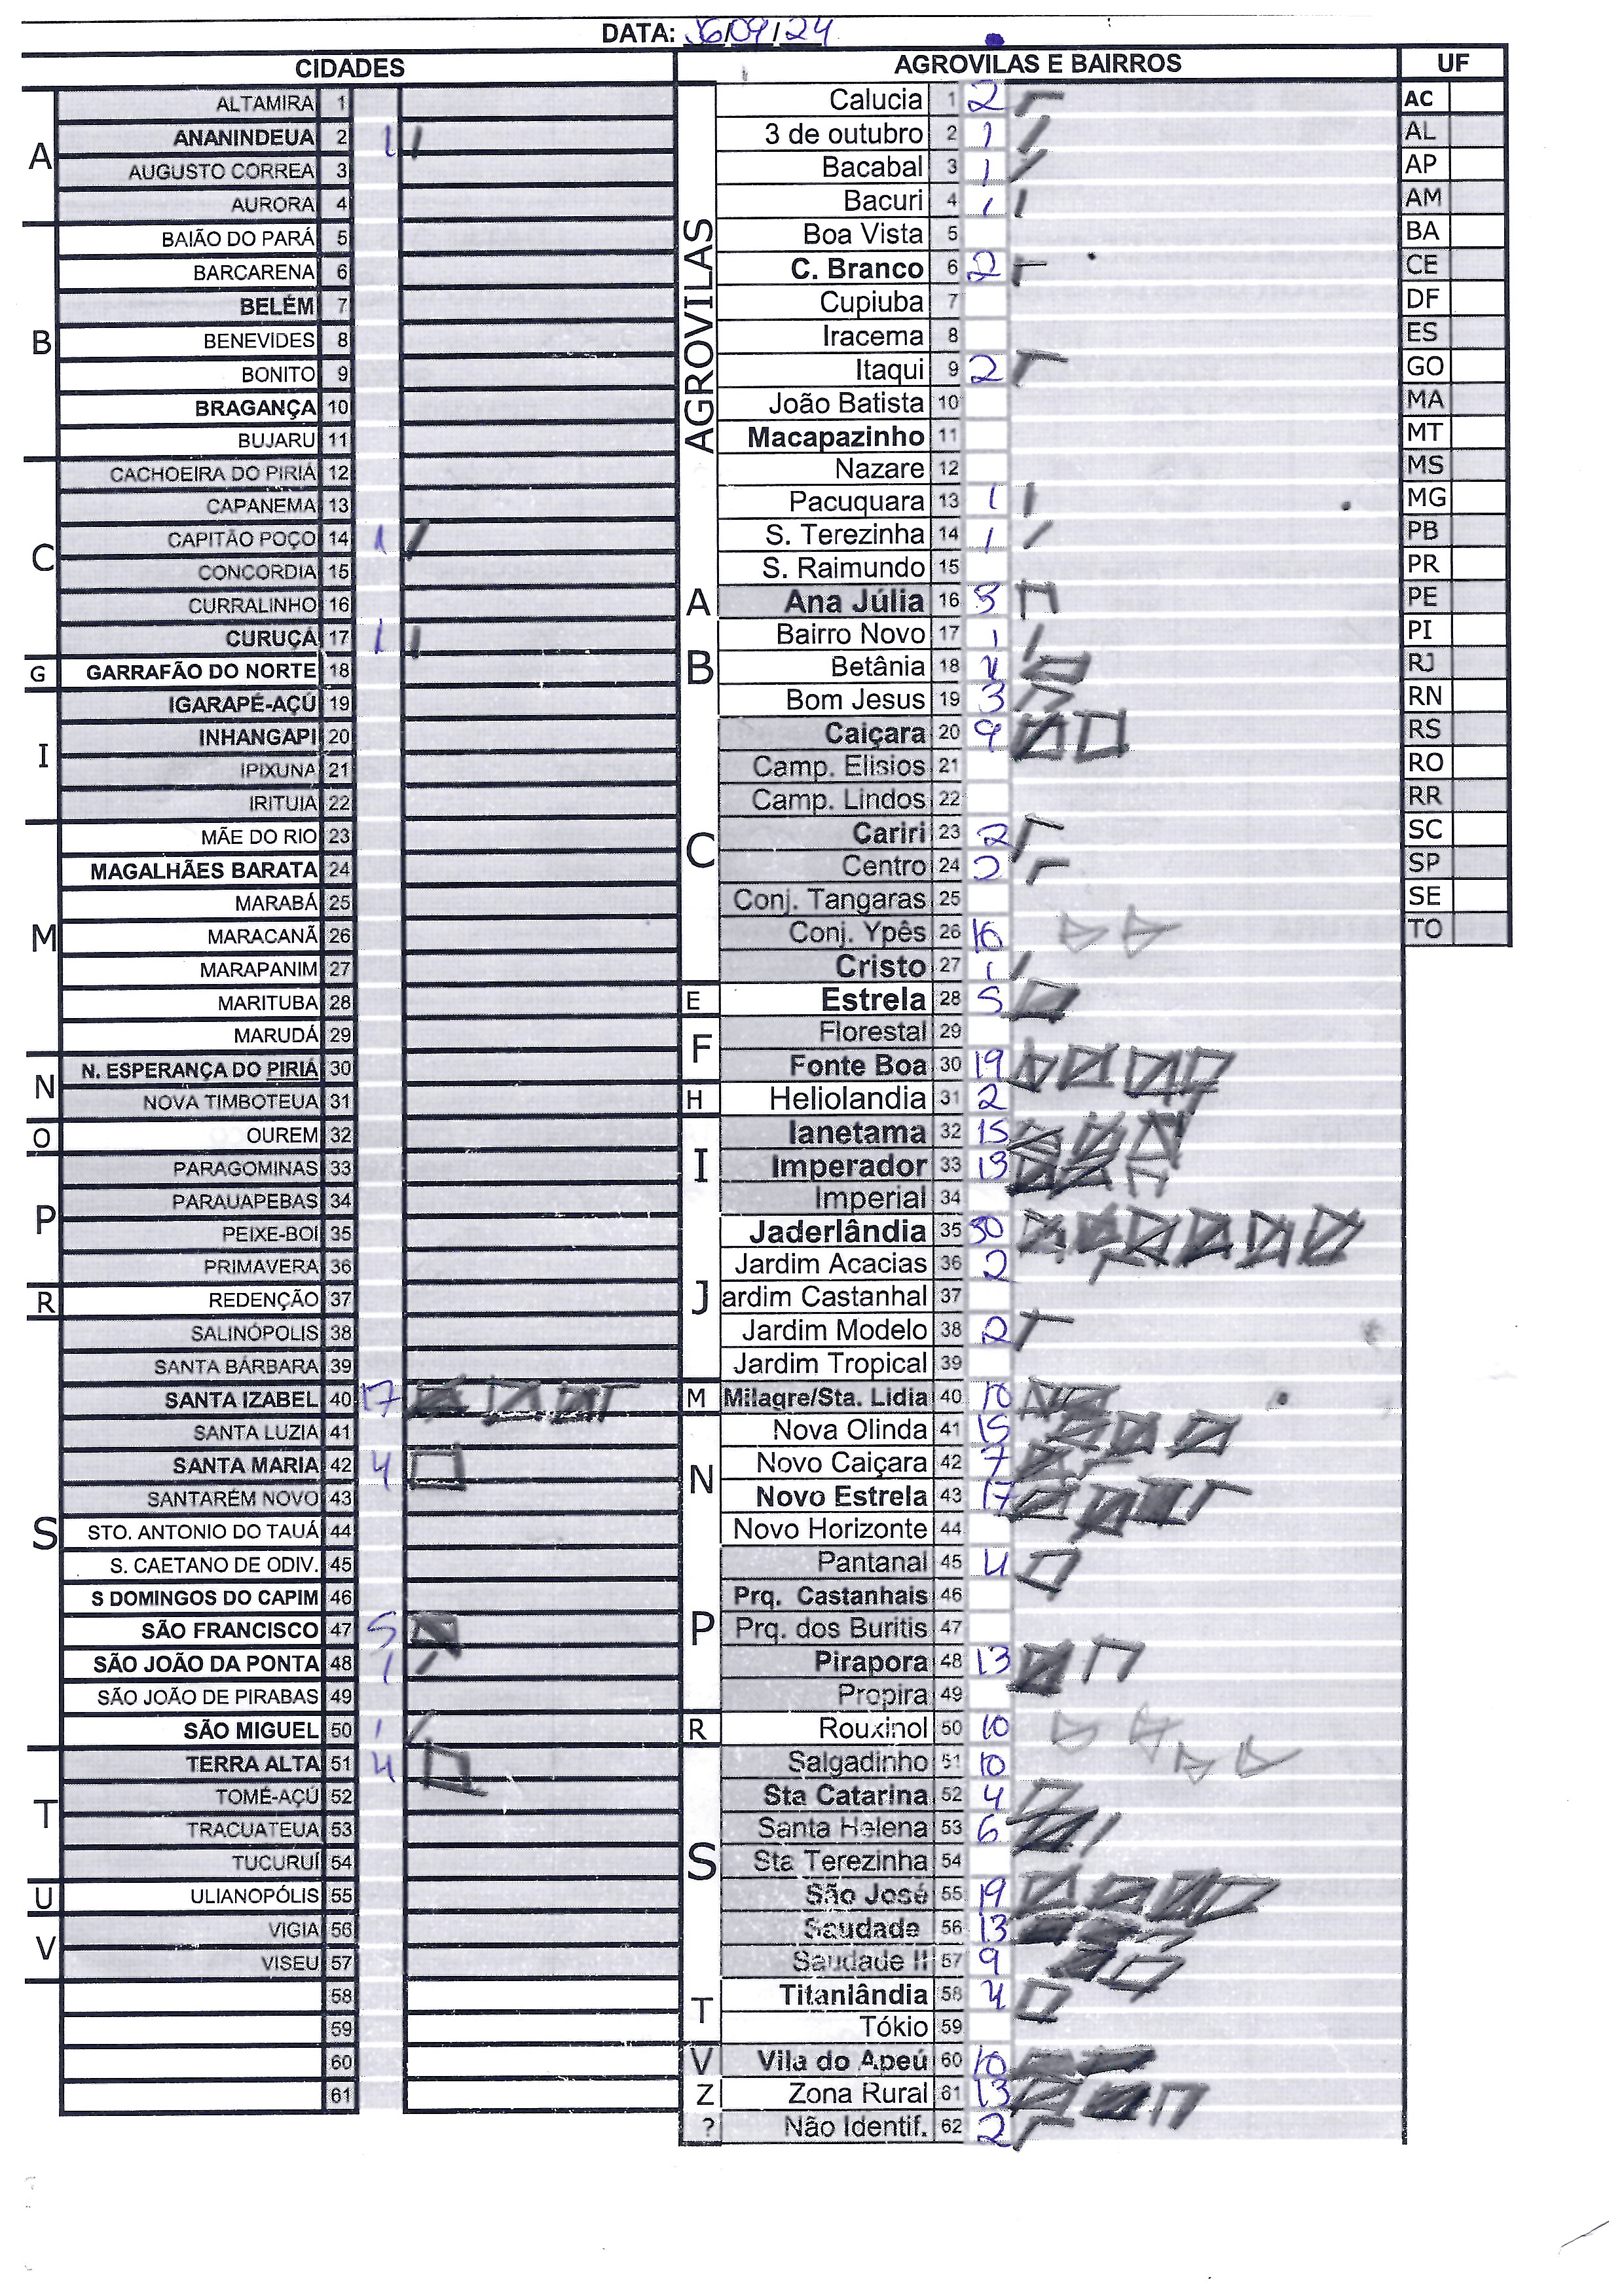 DATA: 16/09/24
CIDADES
A
ALTAMIRA 1
ANANINDEUA 2 1
AUGUSTO CORREA 3
AURORA 4
B
BAIÃO DO PARÁ 5
BARCARENA 6
BELÉM 7
BENEVIDES 8
BONITO 9
BRAGANÇA 10
BUJARU 11
C
CACHOEIRA DO PIRIÁ 12
CAPANEMA 13
CAPITÃO POÇO 14 1
CONCORDIA 15
CURRALINHO 16
CURUÇÁ 17 1
G
GARRAFÃO DO NORTE 18
I
IGARAPÉ-AÇÚ 19
INHANGAPI 20
IPIXUNA 21
IRITUIA 22
M
MÃE DO RIO 23
MAGALHÃES BARATA 24
MARABÁ 25
MARACANÃ 26
MARAPANIM 27
MARITUBA 28
MARUDÁ 29
N
N. ESPERANÇA DO PIRIÁ 30
NOVA TIMBOTEUA 31
O
OUREM 32
P
PARAGOMINAS 33
PARAUAPEBAS 34
PEIXE-BOI 35
PRIMAVERA 36
R
REDENÇÃO 37
S
SALINÓPOLIS 38
SANTA BÁRBARA 39
SANTA IZABEL 40 17
SANTA LUZIA 41
SANTA MARIA 42 4
SANTARÉM NOVO 43
STO. ANTONIO DO TAUÁ 44
S. CAETANO DE ODIV. 45
S DOMINGOS DO CAPIM 46
SÃO FRANCISCO 47 5
SÃO JOÃO DA PONTA 48 1
SÃO JOÃO DE PIRABAS 49
SÃO MIGUEL 50 1
T
TERRA ALTA 51 4
TOMÉ-AÇÚ 52
TRACUATEUA 53
TUCURUÍ 54
U
ULIANOPÓLIS 55
V
VIGIA 56
VISEU 57
58
59
60
61
AGROVILAS E BAIRROS
AGROVILAS
Calucia 1 2
3 de outubro 2 1
Bacabal 3 1
Bacuri 4 1
Boa Vista 5
C. Branco 6 2
Cupiuba 7
Iracema 8
Itaqui 9 2
João Batista 10
Macapazinho 11
Nazare 12
Pacuquara 13 1
S. Terezinha 14 1
S. Raimundo 15
A
Ana Júlia 16 3
B
Bairro Novo 17 1
Betânia 18
Bom Jesus 19 3
C
Caiçara 20 9
Camp. Elisios 21
Camp. Lindos 22
Cariri 23 2
Centro 24 2
Conj. Tangaras 25
Conj. Ypês 26 16
Cristo 27 1
E
Estrela 28 5
F
Florestal 29
Fonte Boa 30 19
H
Heliolandia 31 2
I
Ianetama 32 15
Imperador 33 13
Imperial 34
J
Jaderlândia 35 30
Jardim Acacias 36 2
ardim Castanhal 37
Jardim Modelo 38 2
Jardim Tropical 39
M
Milagre/Sta. Lidia 40 10
N
Nova Olinda 41 15
Novo Caiçara 42 7
Novo Estrela 43 17
Novo Horizonte 44
P
Pantanal 45 4
Prq. Castanhais 46
Prq. dos Buritis 47
Pirapora 48 13
Propira 49
R
Rouxinol 50 10
S
Salgadinho 51 10
Sta Catarina 52 4
Santa Helena 53 6
Sta Terezinha 54
São José 55 19
Saudade 56 13
Saudade II 57 9
T
Titanlândia 58 4
Tókio 59
V
Vila do Apeú 60 10
Z
Zona Rural 61 13
?
Não Identif. 62 2
UF
AC
AL
AP
AM
BA
CE
DF
ES
GO
MA
MT
MS
MG
PB
PR
PE
PI
RJ
RN
RS
RO
RR
SC
SP
SE
TO